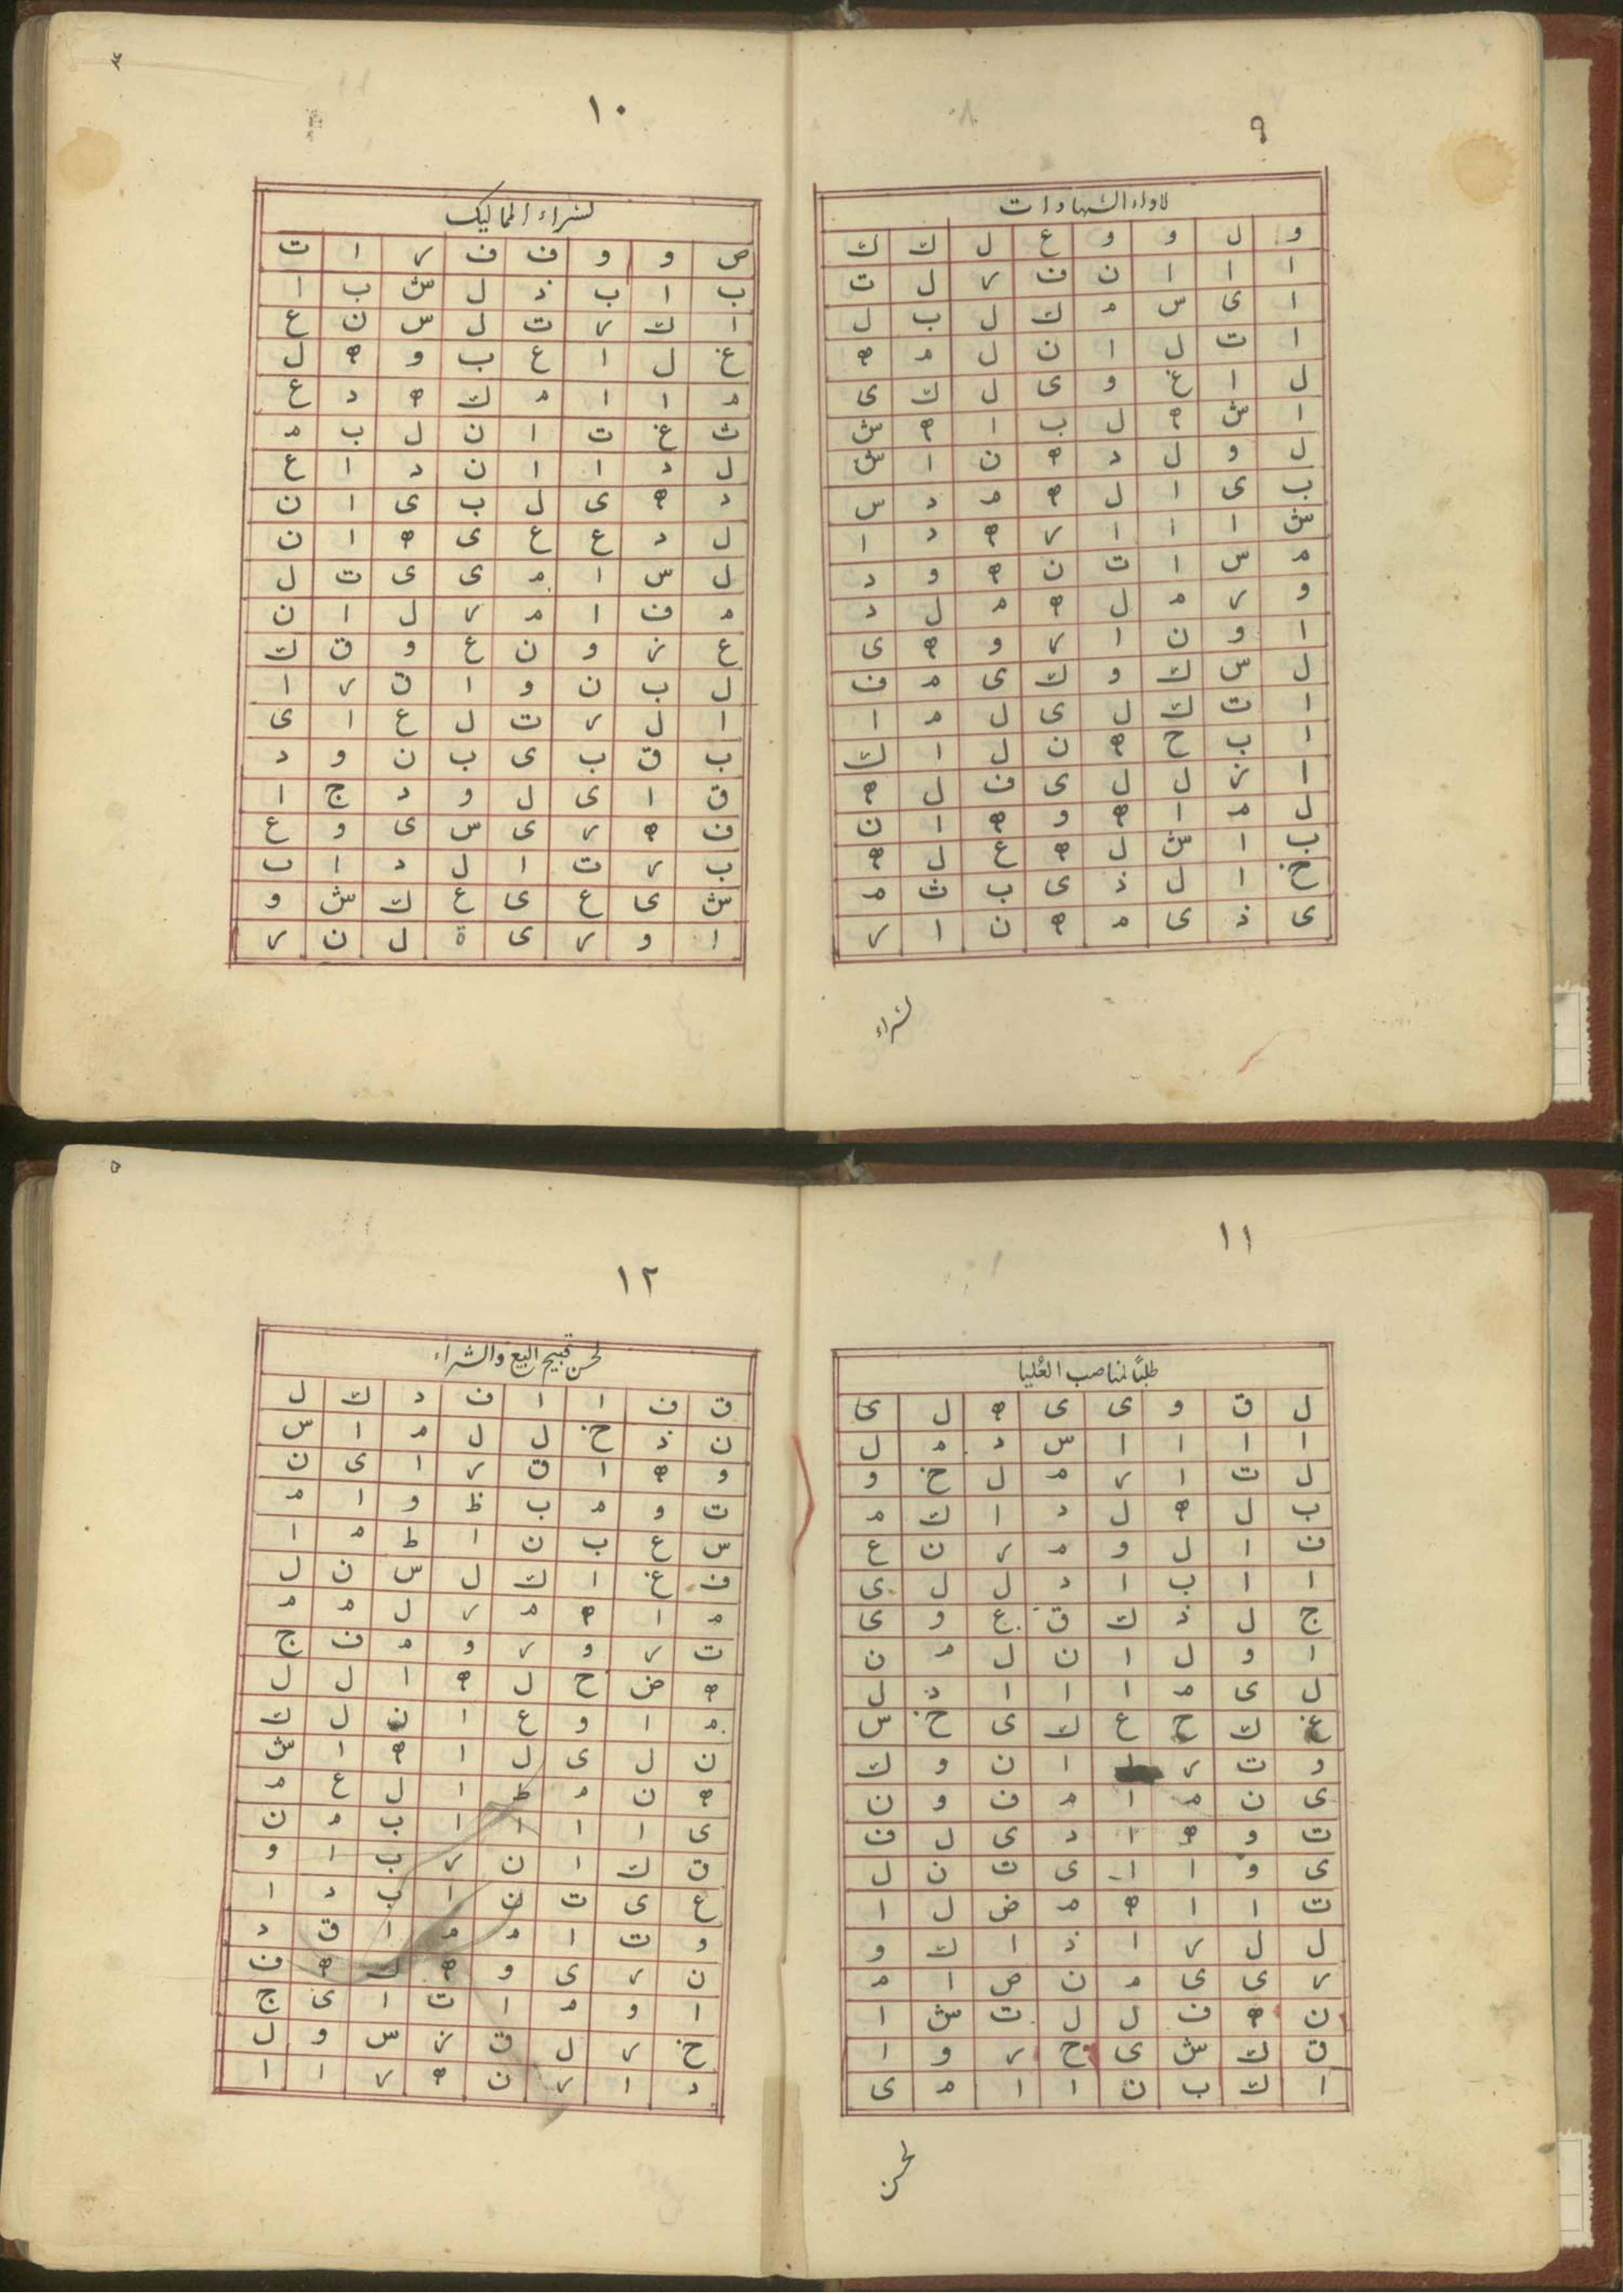 ٩
لاداء الشهادات
و ل و و ع ل ك ك
ا ا ا ن ف ر ل ت
ا ى س م ك ل ب ل
ا ت ل ا ن ل م ه
ل ا غ و ى ل ك ى
ا ش ه ل ب ا ه ش
ل و ل د ه ن ا ش
ب ى ا ل ه م د س
ش ا ا ا ر ه د ا
م س ا ت ن ه و د
و ر م ل ه م ل د
ا و ن ا ر و ه ى
ل س ك و ك ى م ف
ا ت ك ل ى ل م ا
ا ب ح ه ن ل ا ك
ا ز ل ل ى ف ل ه
ل م ا ه و ه ا ن
ب ا ش ل ه ع ل ه
خ ا ل ذ ى ب ث م
ى ذ ى م ه ن ا ر
لشراء
١٠
لشراء المماليك
ص و و ف ف ر ا ت
ب ا ب ذ ل ش ب ا
ا ك ر ت ل س ن ع
غ ل ا ع ب و ه ل
م ا ا م ك ه د ع
ث غ ت ا ن ل ب م
ل د ا ا ن د ا ع
د ه ى ل ب ى ا ن
ل د ع ع ى ه ا ن
ل س ا م ى ى ت ل
م ف ا م ر ل ا ن
ع ز و ن ع و ق ك
ل ب ن و ا ق ر ا
ا ل ر ت ل ع ا ى
ب ق ب ى ب ن و د
ق ا ى ل و د ج ا
ف ه ر ى س ى و ع
ب ر ت ا ل د ا ب
ش ى ع ى ع ك ش و
ا و ر ى ة ل ن ر
١١
طلبًا لمناصب العُليا
ل ق و ى ى ه ل ى
ا ا ا ا س د م ل
ل ت ا ر م ل خ و
ب ل ه ل د ا ك م
ف ا ل و م ر ن ع
ا ا ب ا د ل ل ى
ج ل ذ ك ق ع و ى
ا و ل ا ن ل م ن
ل ى م ا ا ا د ل
غ ك ح ع ك ى خ س
و ت ر ا ن و ك
ى ن م ا م ف و ن
ت و ه ا د ى ل ف
ى و ا ا ى ت ن ل
ت ا ا ه م ض ل ا
ل ل ر ا ذ ا ك و
ر ى ى م ن ص ا م
ن ه ف ل ل ت ش ا
ق ك ش ى خ ر و ا
ا ك ب ن ا ا م ى
لحسن
١٢
لحسن قبيح البيع والشراء
ق ف ا ا ف د ك ل
ن ذ خ ل ل م ا س
و ه ا ق ر ا ى ن
ت و م ب ظ و ا م
س ع ب ن ا ط م ا
ف غ ا ك ل س ن ل
م ا ه م ر ل م م
ت ر و ر و م ف ج
ه ض ح ل ه ا ل ل
م ا و ع ا ن ل ك
ن ل ى ل ا ه ا ش
ه ن م ط ا ل ع م
ى ا ا ا ا ب م ن
ق ك ا ن ر ب ا و
ع ى ت ن ا ب د ا
و ت ا م م ا ق د
ن ر ى و ه ك ه ف
ا و م ا ت ا ى ج
خ ر ل ق ز س و ل
د ا ر ن ه ر ا ا